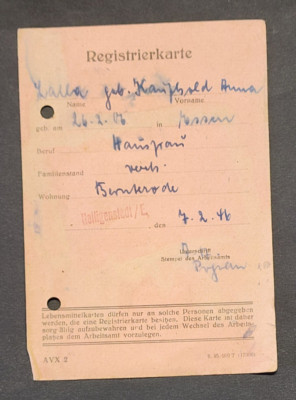 Registrierkarte
geb. Kauphold Anna
Name Vorname
geb. am 26.2.06 in Essen
Beruf Hausfrau
Familienstand verh.
Wohnung Bernterode
Heiligenstadt/E., den 7.2.46
Unterschrift
Stempel des Arbeitsamts
Lebensmittelkarten dürfen nur an solche Personen abgegeben
werden, die eine Registrierkarte besitzen. Diese Karte ist daher
sorgfältig aufzubewahren und bei jedem Wechsel des Arbeits-
platzes dem Arbeitsamt vorzulegen.
AVX 2